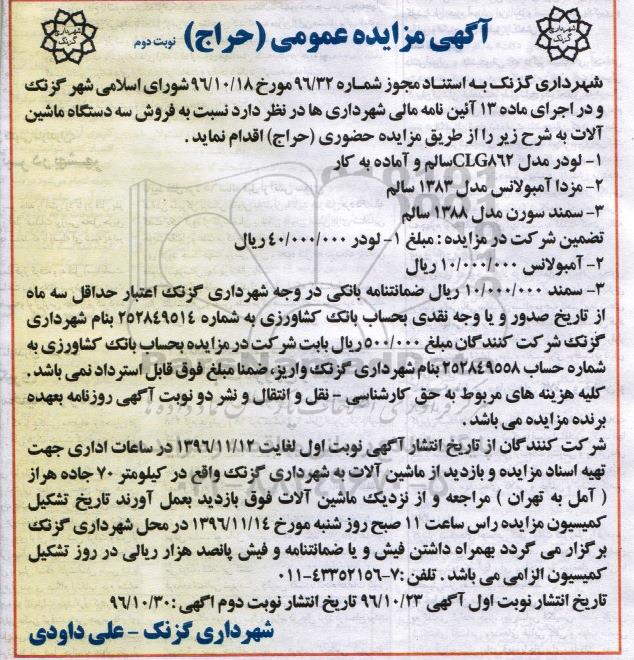 شهرداری گزنک
آگهی مزایده عمومی (حراج) نوبت دوم
شهرداری گزنک
شهرداری گزنک به استناد مجوز شماره ۹۶/۳۲ مورخ ۹۶/۱۰/۱۸ شورای اسلامی شهر گزنک
و در اجرای ماده ۱۳ آئین نامه مالی شهرداری ها در نظر دارد نسبت به فروش سه دستگاه ماشین
آلات به شرح زیر را از طریق مزایده حضوری (حراج) اقدام نماید .
۱- لودر مدل CLG۸۶۲سالم و آماده به کار
۲- مزدا آمبولانس مدل ۱۳۸۳ سالم
۳- سمند سورن مدل ۱۳۸۸ سالم
تضمین شرکت در مزایده : مبلغ ۱- لودر ۴۰/۰۰۰/۰۰۰ ریال
۲- آمبولانس ۱۰/۰۰۰/۰۰۰ ریال
۳- سمند ۱۰/۰۰۰/۰۰۰ ریال ضمانتنامه بانکی در وجه شهرداری گزنک اعتبار حداقل سه ماه
از تاریخ صدور و یا وجه نقدی بحساب بانک کشاورزی به شماره ۲۵۲۸۴۹۵۱۴ بنام شهرداری
گزنک شرکت کنندگان مبلغ ۵۰۰/۰۰۰ ریال بابت شرکت در مزایده بحساب بانک کشاورزی به
شماره حساب ۲۵۲۸۴۹۵۵۸ بنام شهرداری گزنک واریز، ضمنا مبلغ فوق قابل استرداد نمی باشد .
کلیه هزینه های مربوط به حق کارشناسی - نقل و انتقال و نشر دو نوبت آگهی روزنامه بعهده
برنده مزایده می باشد .
شرکت کنندگان از تاریخ انتشار آگهی نوبت اول لغایت ۱۳۹۶/۱۱/۱۲ در ساعات اداری جهت
تهیه اسناد مزایده و بازدید از ماشین آلات به شهرداری گزنک واقع در کیلومتر ۷۰ جاده هراز
( آمل به تهران ) مراجعه و از نزدیک ماشین آلات فوق بازدید بعمل آورند تاریخ تشکیل
کمیسیون مزایده راس ساعت ۱۱ صبح روز شنبه مورخ ۱۳۹۶/۱۱/۱۴ در محل شهرداری گزنک
برگزار می گردد بهمراه داشتن فیش و یا ضمانتنامه و فیش پانصد هزار ریالی در روز تشکیل
کمیسیون الزامی می باشد . تلفن :۷-۴۳۳۵۲۱۵۶-۰۱۱
تاریخ انتشار نوبت اول آگهی ۹۶/۱۰/۲۳ تاریخ انتشار نوبت دوم اگهی :۹۶/۱۰/۳۰
شهرداری گزنک - علی داودی